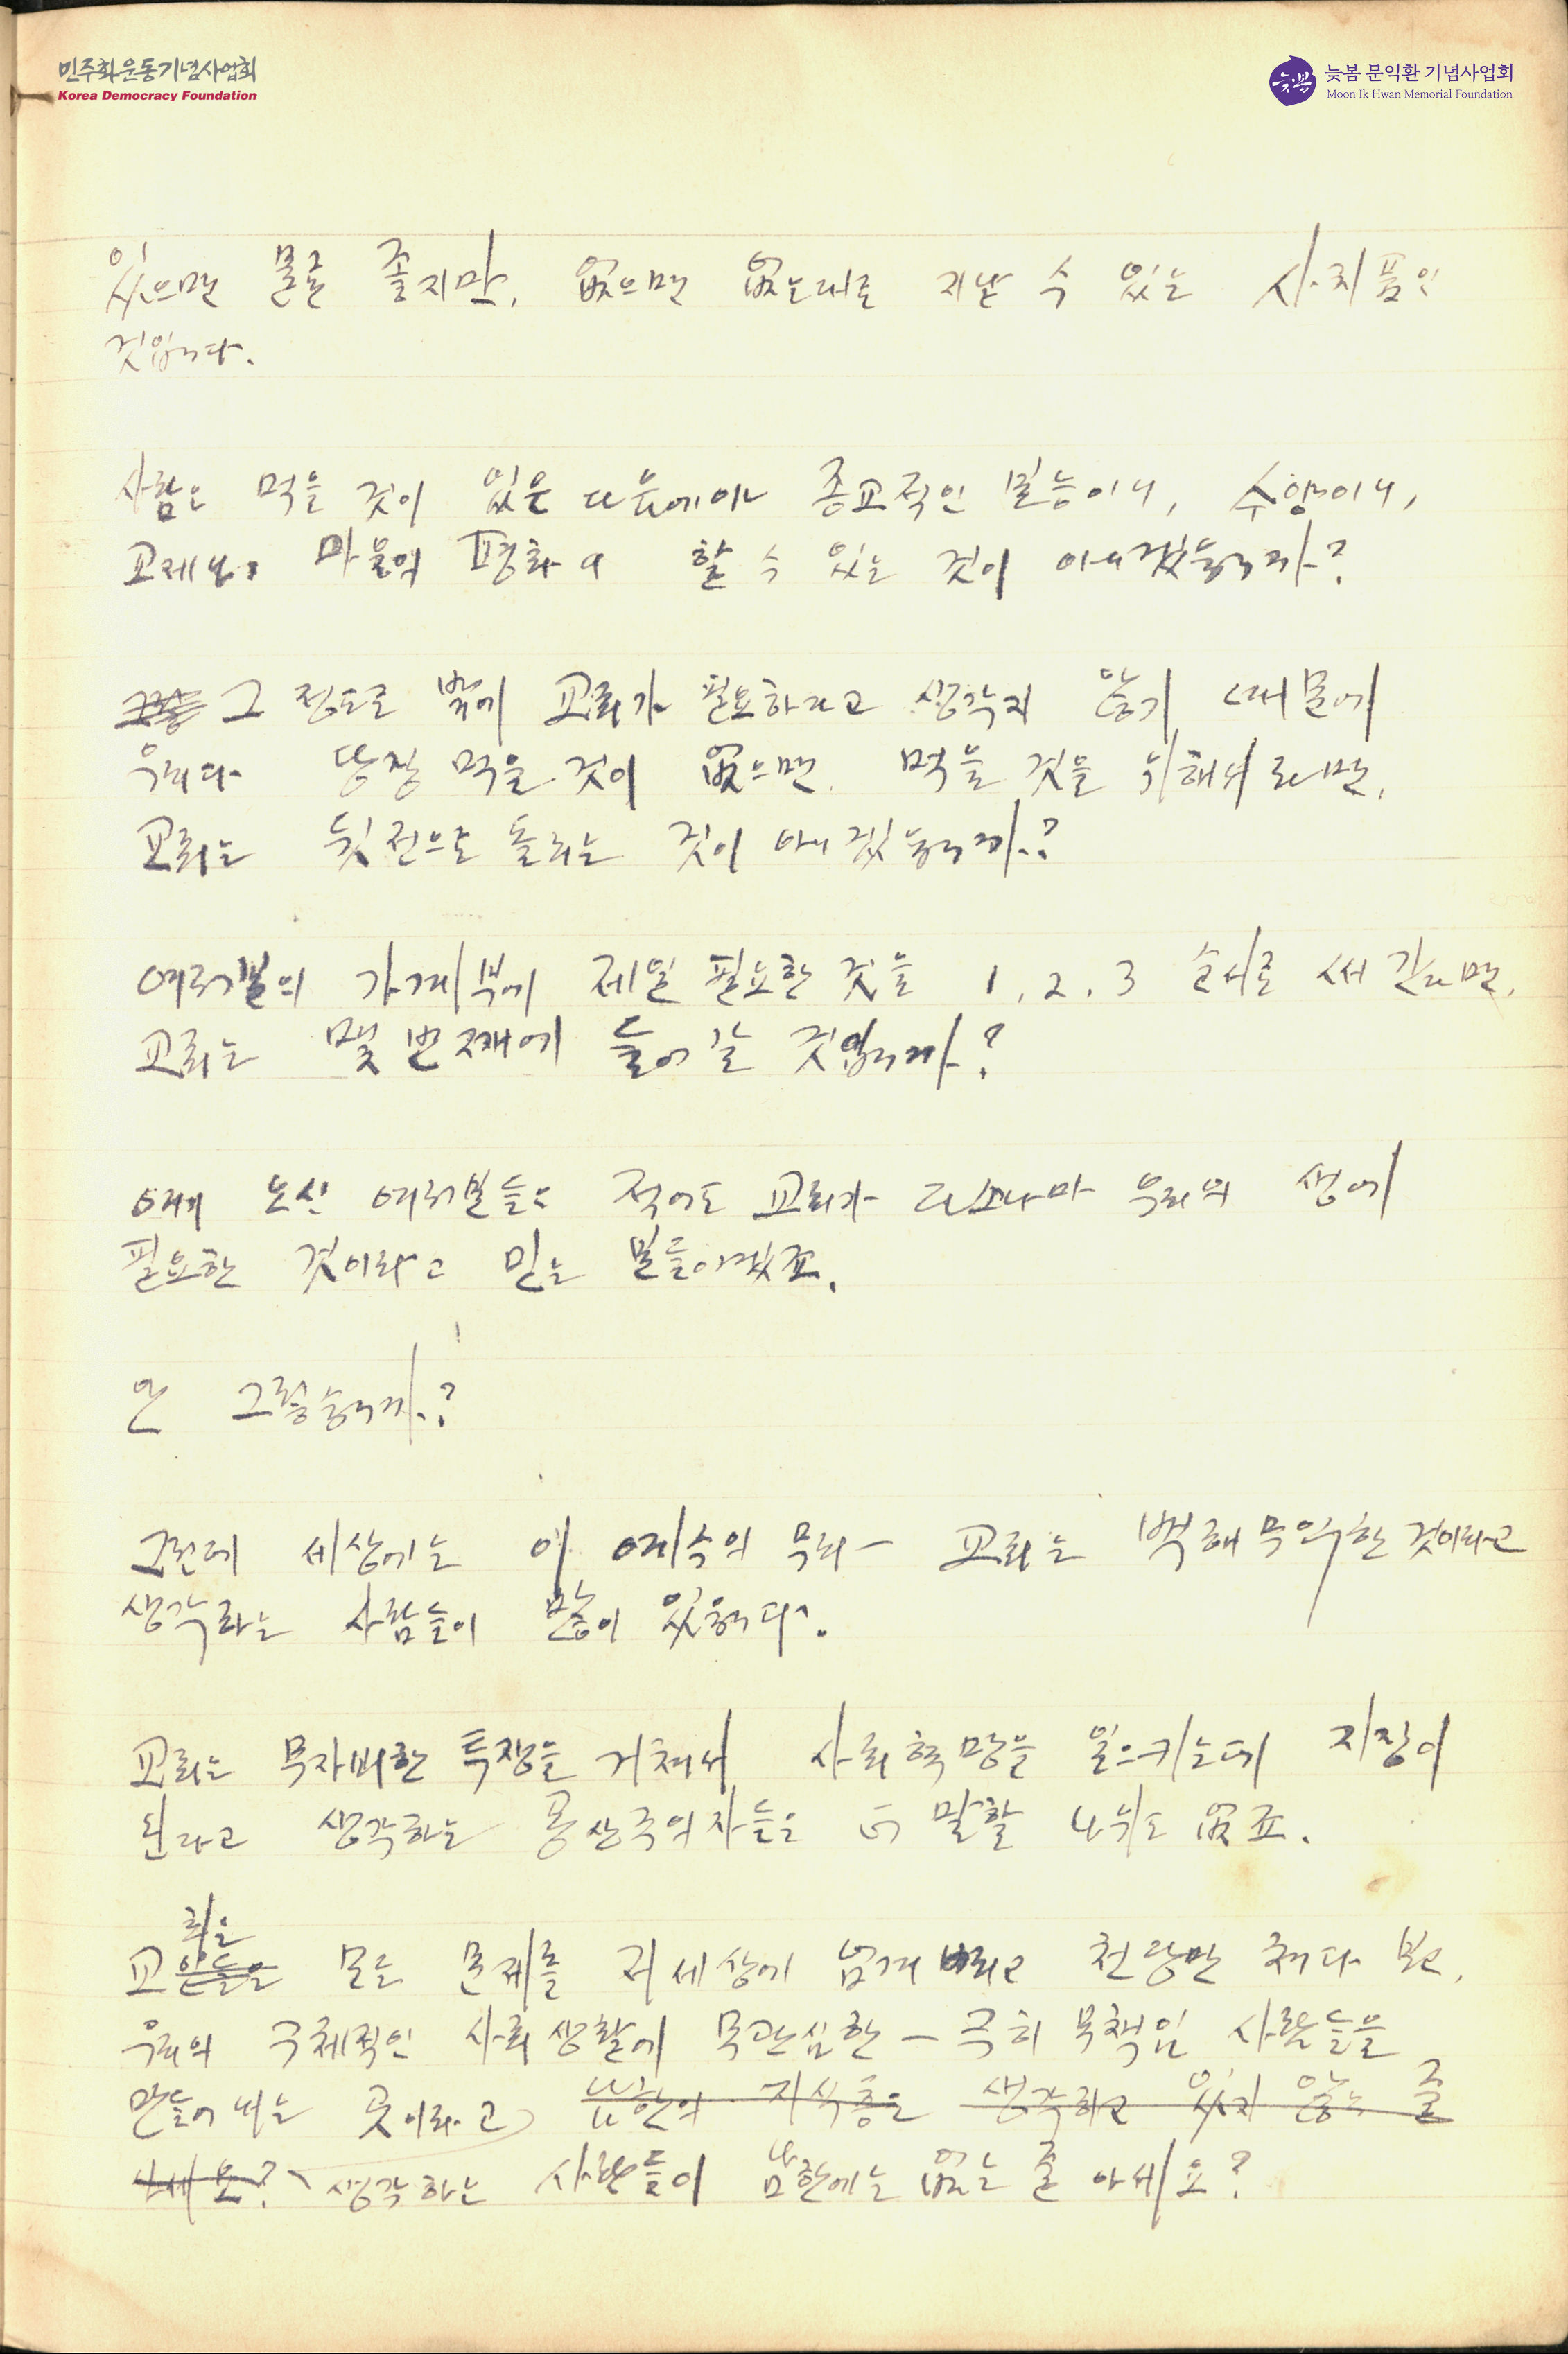 민주화운동기념사업회
Korea Democracy Foundation
늦봄
늦봄 문익환 기념사업회
Moon Ik Hwan Memorial Foundation
있으면 물론 좋지만, 없으면 없는대로 지날 수 있는 사치품인
것입니다.
사람은 먹을 것이 있은 다음에야 종교적인 본능이니, 수양이니,
교제니 마음의 평화야 할 수 있는 것이 아니겠습니까?
그 정도로 밖에 교회가 필요하다고 생각지 않기 때문에
우리다 당장 먹을 것이 없으면, 먹을 것을 위해서라면,
교회는 뒷전으로 돌리는 것이 아니겠습니까?
여러분의 가계부에 제일 필요한 것을 1, 2, 3 순서로 써 간다면,
교회는 몇 번째에 들어갈 것입니까?
예게 오신 여러분들은 적어도 교회가 다소나마 우리의 생에
필요한 것이라고 믿는 분들이겠죠.
안 그렇습니까?
그런데 세상에는 이 예수의 무리— 교회는 백해무익한 것이라고
생각하는 사람들이 많이 있습니다.
교회는 무자비한 투쟁을 거쳐서 사회혁명을 일으키는데 지장이
된다고 생각하는 공산주의자들은 더 말할 나위도 없죠.
회는
교인들은 모든 문제를 저 세상에 넘겨 버리고 천당만 쳐다 보고,
우리의 구체적인 사회생활에 무관심한— 극히 무책임 사람들을
만들어 내는 곳이라고 남한의 지식층은 생각하고 있지 않는 줄
아세요? 생각하는 사람들이 남한에는 없는 줄 아세요?